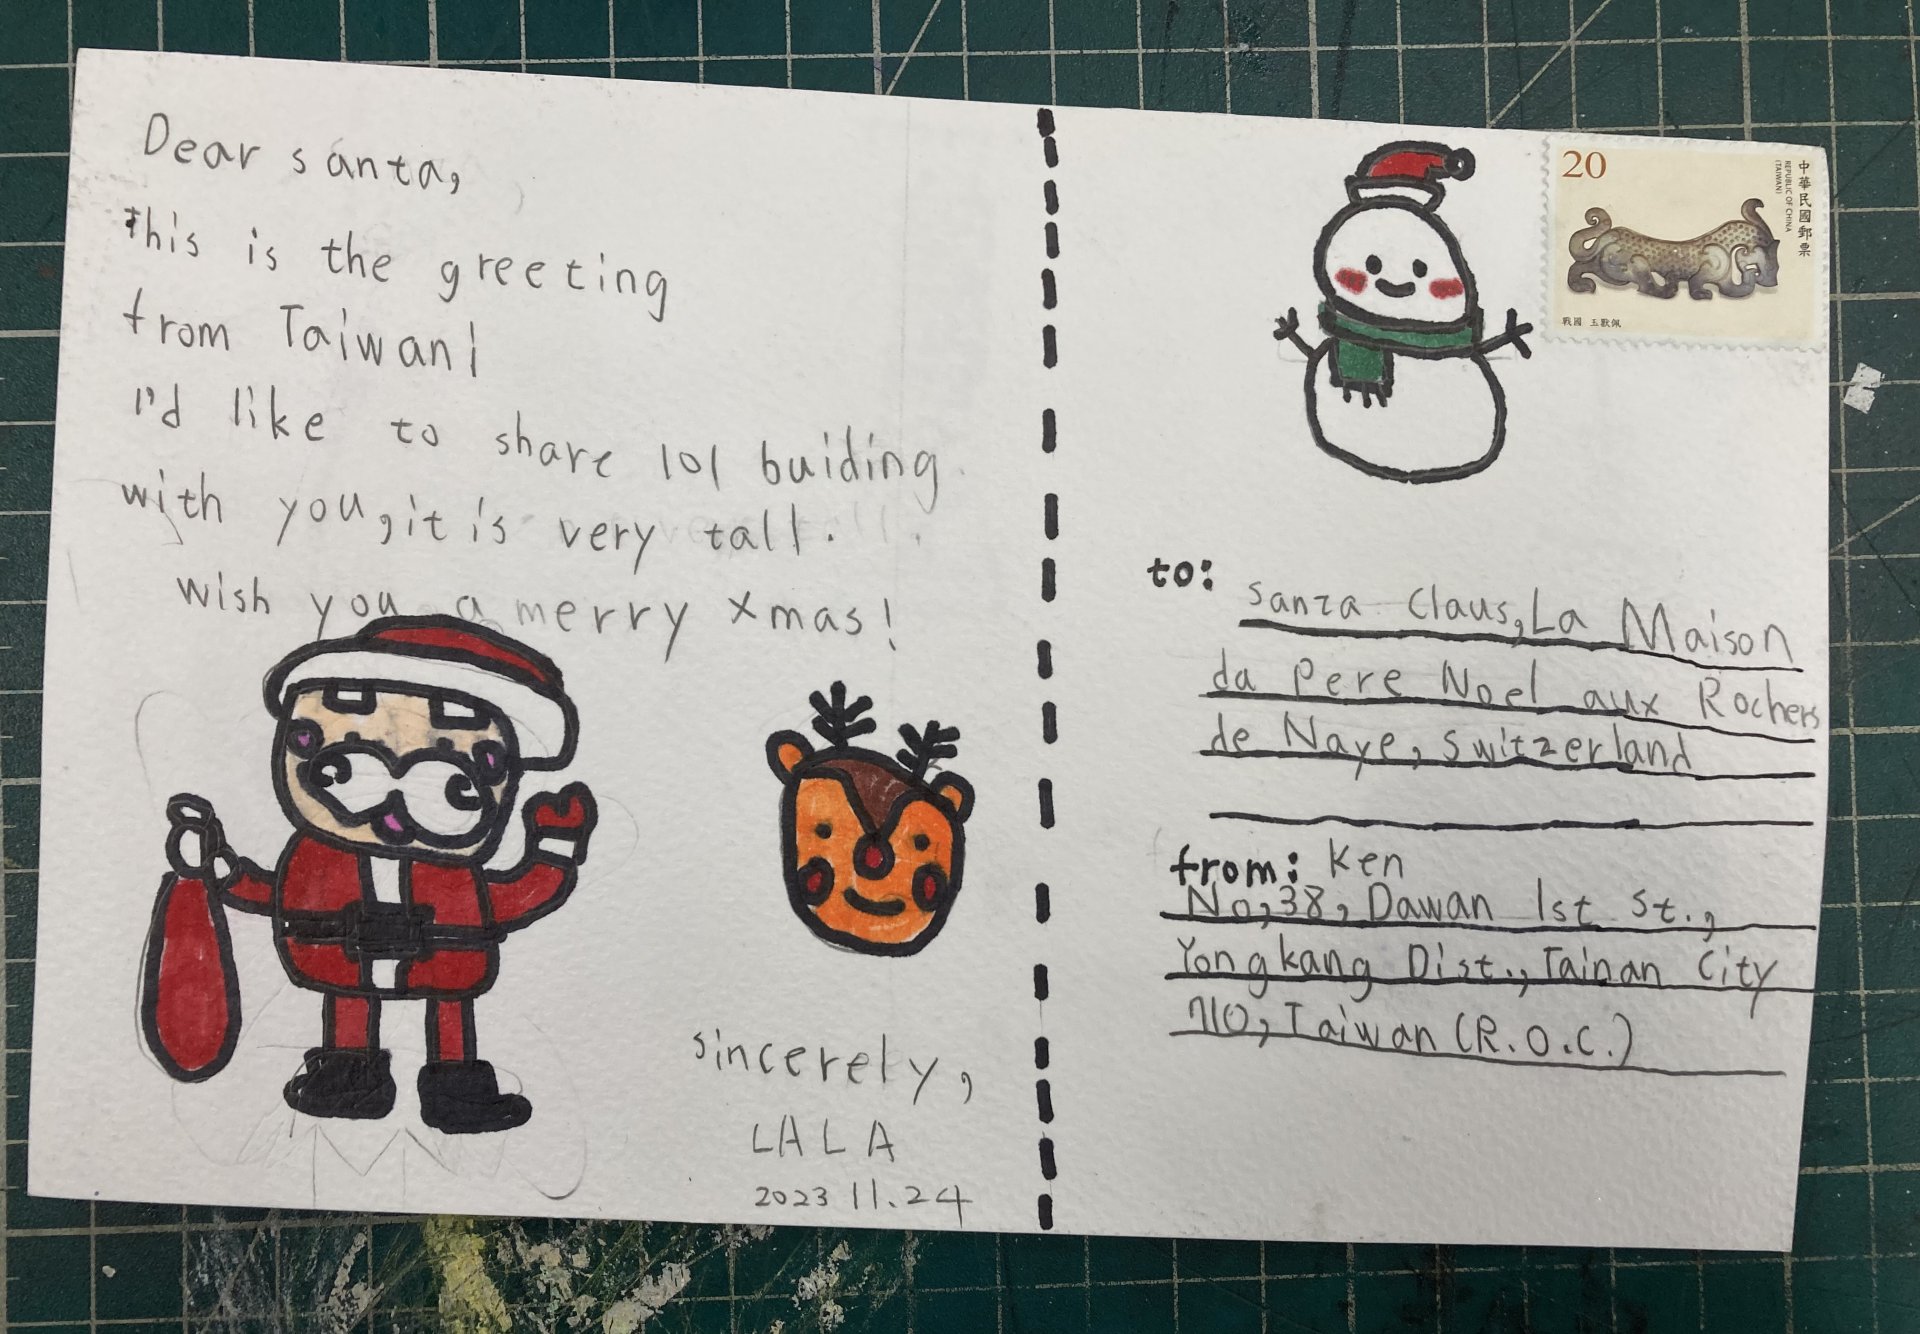 Dear santa,
this is the greeting
from Taiwan!
I'd like to share 101 buiding
with you, it is very tall.
wish you a merry xmas!
sincerely,
LALA
2023 11.24
20
中華民國郵票
REPUBLIC OF CHINA
(TAIWAN)
戰國 玉獸佩
to:
santa Claus, La Maison
da Pere Noel aux Rochers
de Naye, switzerland
from: Ken
No,38, Dawan 1st st.,
Yongkang Dist., Tainan City
710, Taiwan (R.O.C.)